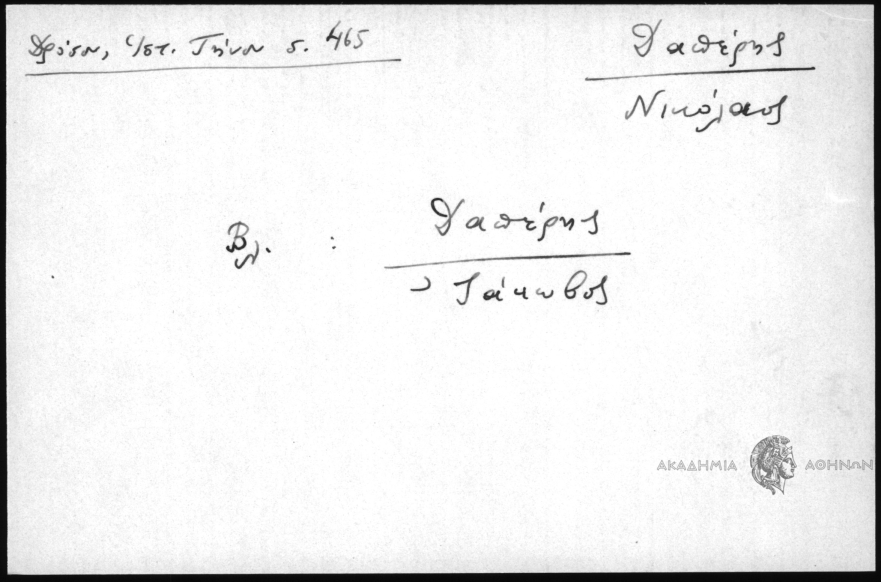 Δρόσου, Ἱστ. Τήνου σ. 465
Δαπέρης
Νικόλαος
Βλ. :
Δαπέρης
Ἰάκωβος
ΑΚΑΔΗΜΙΑ ΑΘΗΝΩΝ